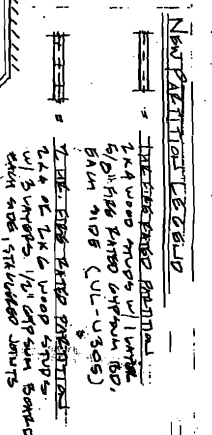 NEW PARTITION LEGEND
= 1 HR. FIRE RATED PARTITION
2x4 WOOD STUDS W/ 1 LAYER
5/8" FIRE RATED GYPSUM BD.
EACH SIDE (UL-U305)
= FIRE RATED PARTITION
2x4 OR 2x6 WOOD STUDS
W/ 1/2" GYPSUM BOARD
EACH SIDE, STAGGERED JOINTS